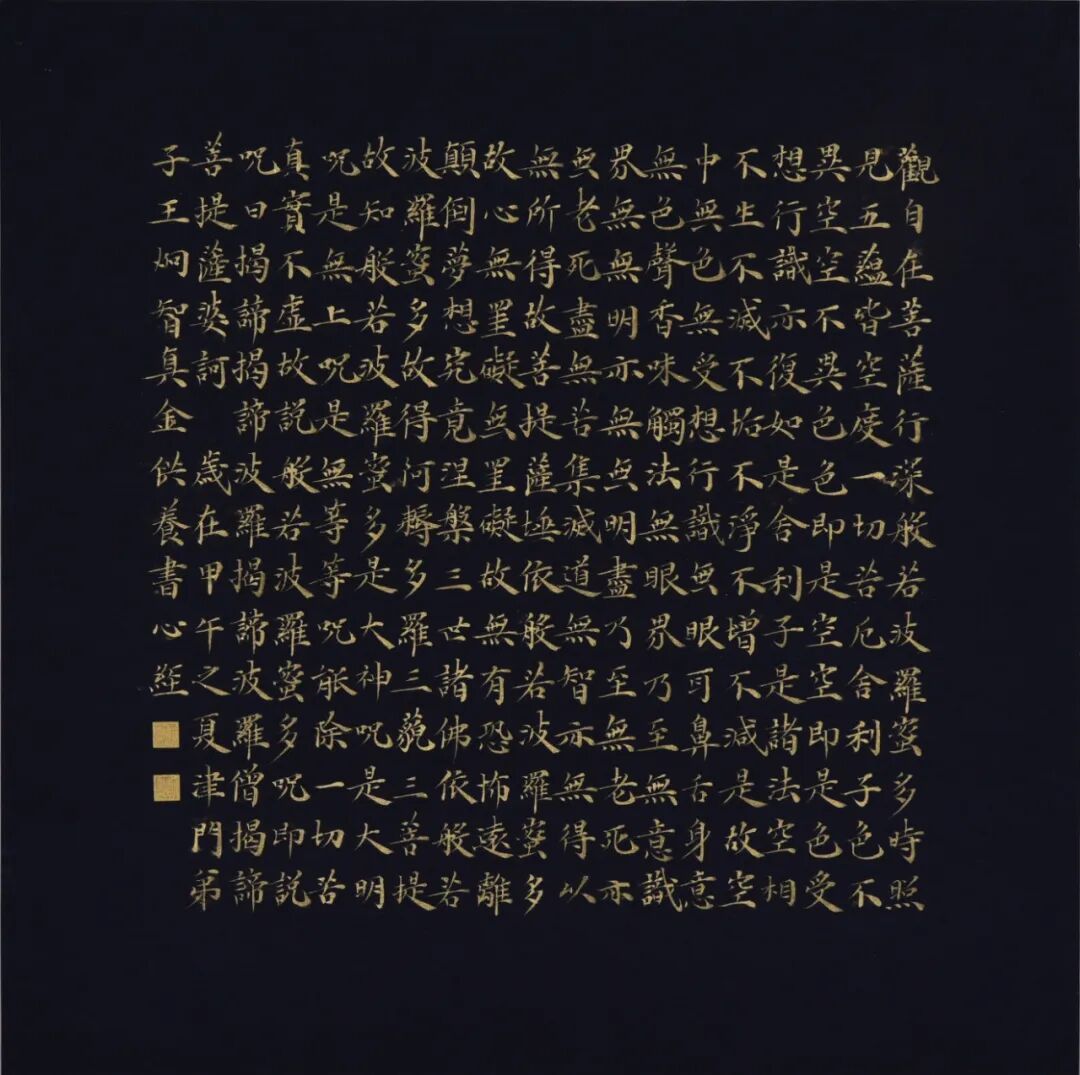 觀自在菩薩行深般若波羅蜜多時照
見五蘊皆空度一切苦厄舍利子色不
異空空不異色色即是空空即是色受
想行識亦復如是舍利子是諸法空相
不生不滅不垢不淨不增不減是故空
中無色無受想行識無眼耳鼻舌身意
無色聲香味觸法無眼界乃至無意識
界無無明亦無無明盡乃至無老死亦
无老死盡無苦集滅道無智亦無得以
無所得故菩提薩埵依般若波羅蜜多
故心無罣礙无罣礙故無有恐怖遠離
顛倒夢想究竟涅槃三世諸佛依般若
波羅蜜多故得阿耨多羅三藐三菩提
故知般若波羅蜜多是大神呪是大明
呪是無上呪是無等等呪能除一切苦
真實不虛故説般若波羅蜜多呪即説
呪曰揭諦揭諦波羅揭諦波羅僧揭諦
菩提薩婆訶 歲在甲午之夏津門弟
子王炯智真金供養書心經